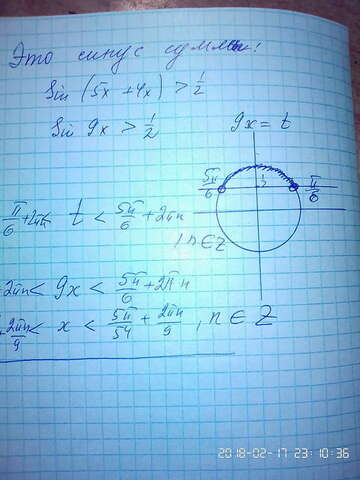 Это синус суммы!
Sin (5x + 4x) > 1/2
Sin 9x > 1/2
9x = t
5π/6 1/2 π/6
π/6 + 2πn < t < 5π/6 + 2πn
, n ∈ Z
2πn < 9x < 5π/6 + 2πn
2πn/9 < x < 5π/54 + 2πn/9 , n ∈ Z
2018-02-17 23:10:36